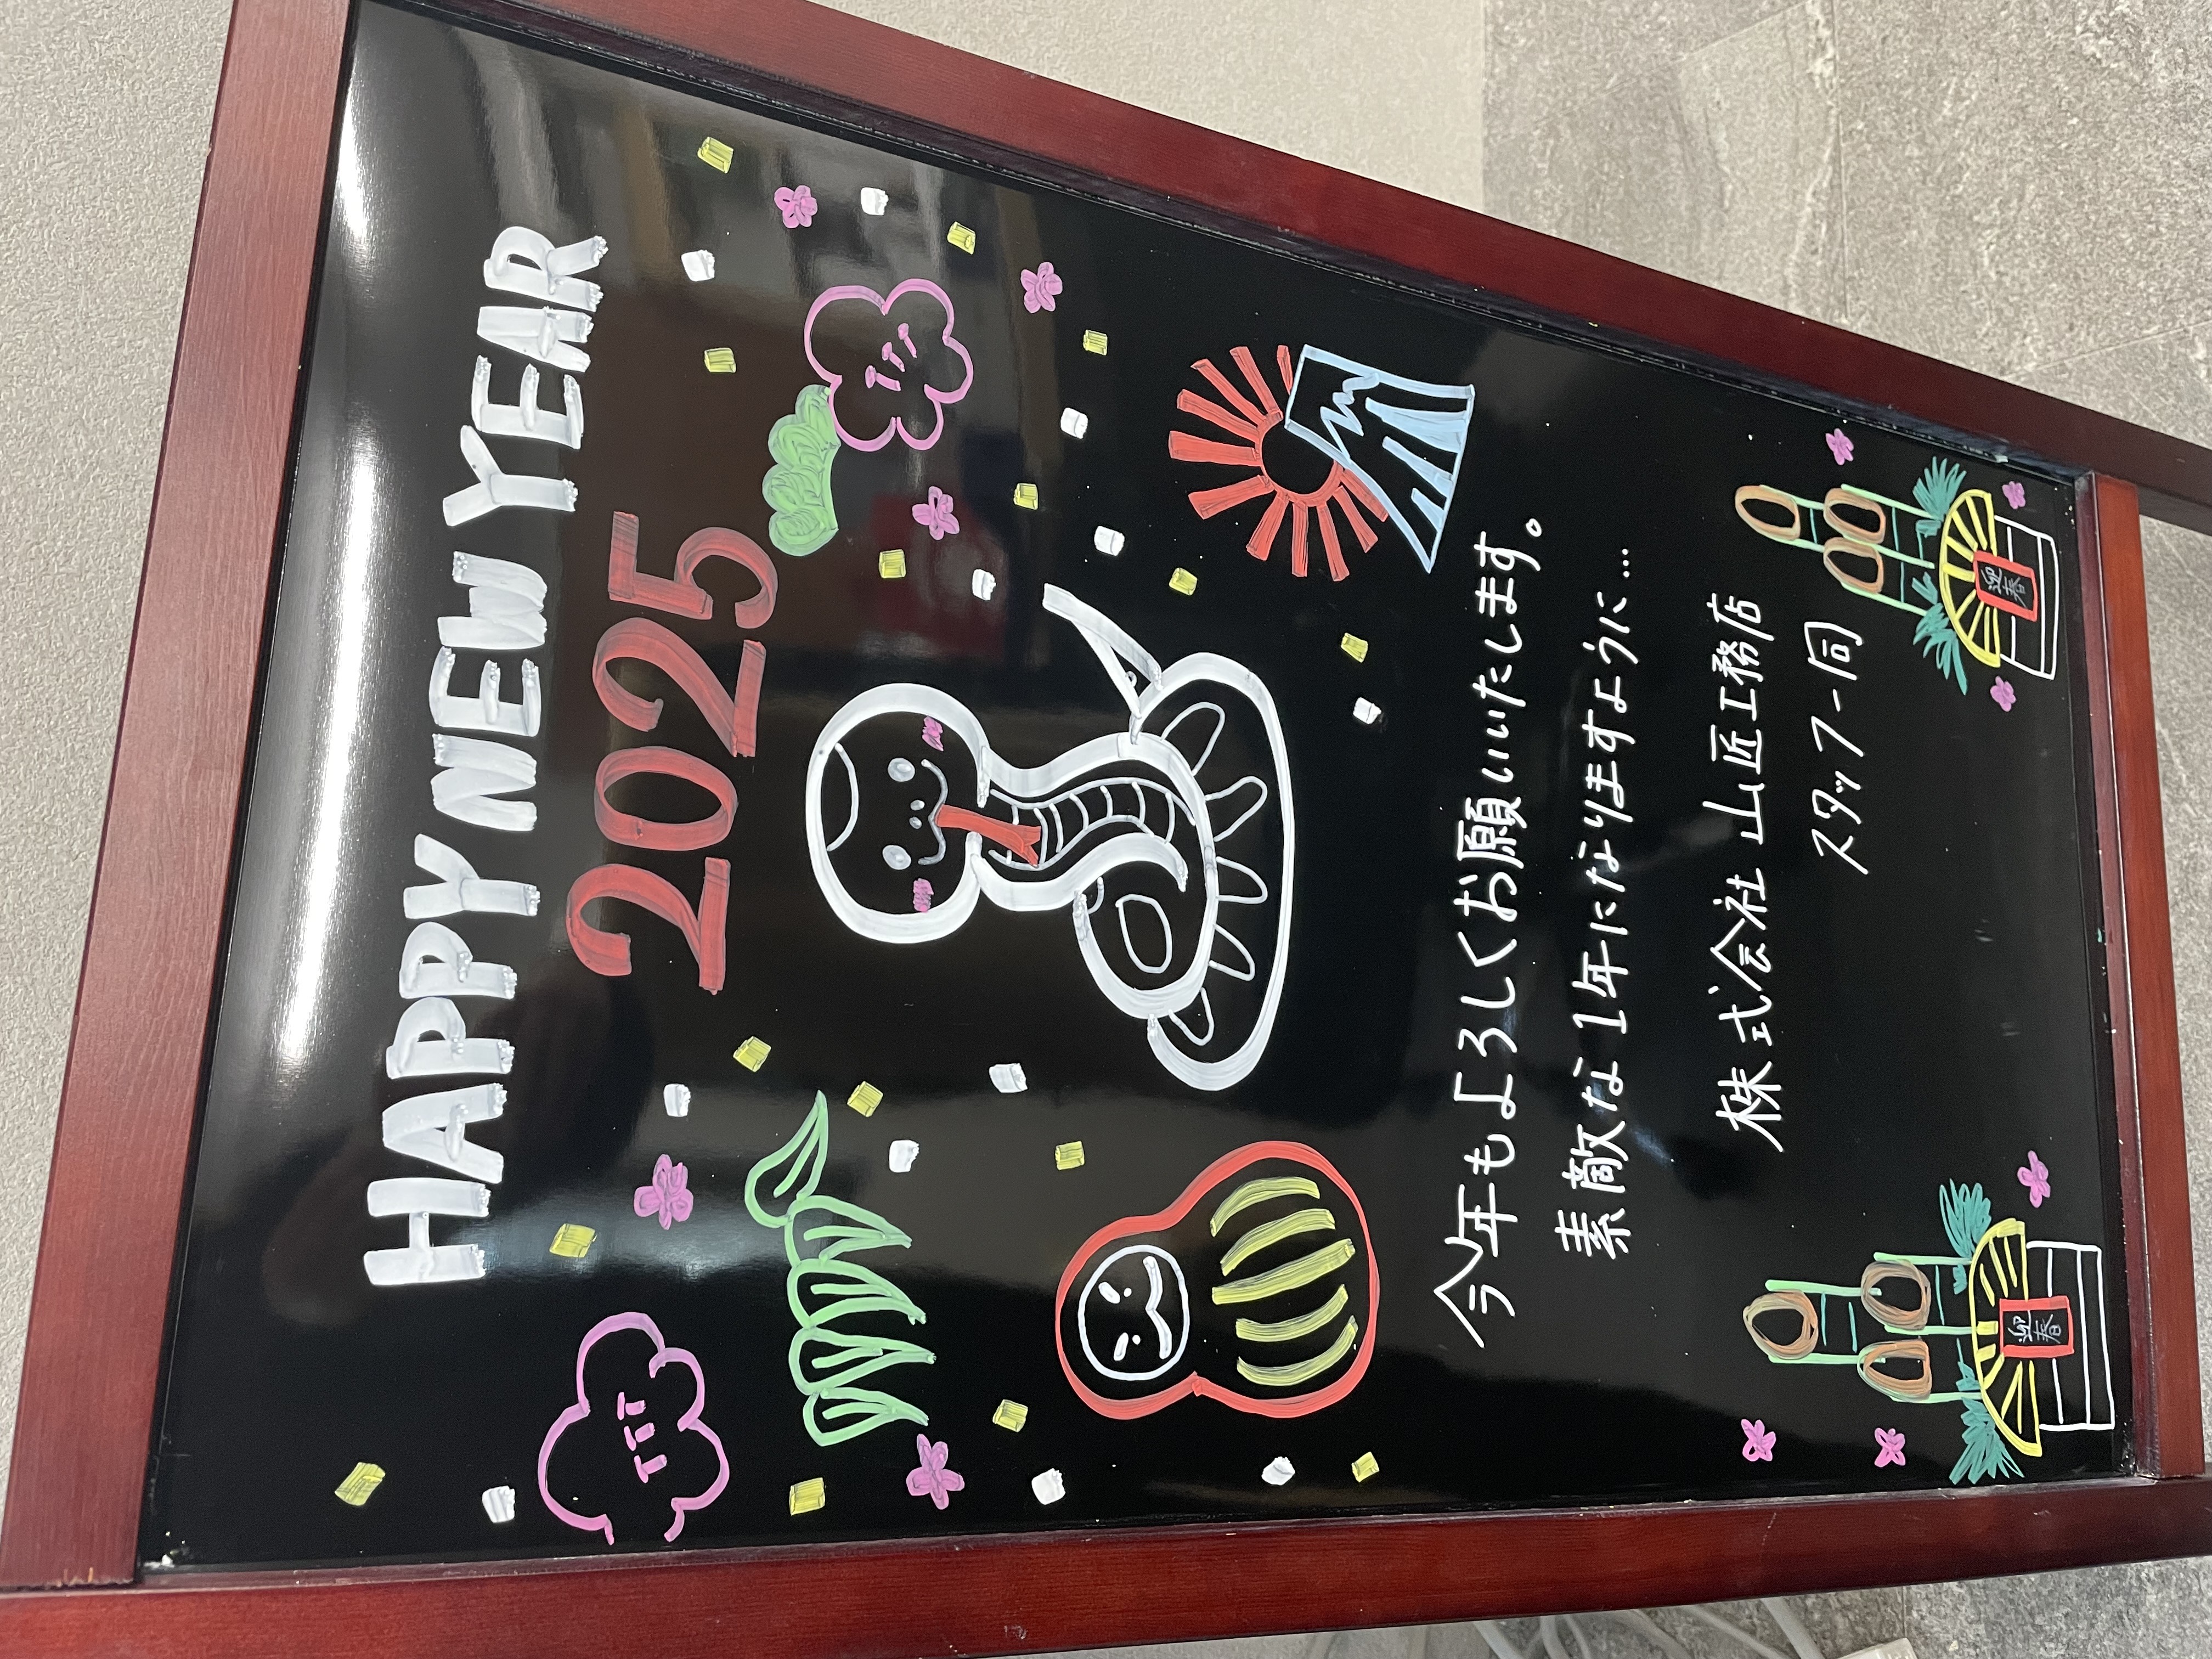 HAPPY NEW YEAR
2025
今年もよろしくお願いいたします。
素敵な1年になりますように…
株式会社 山匠工務店
スタッフ一同
迎春
迎春